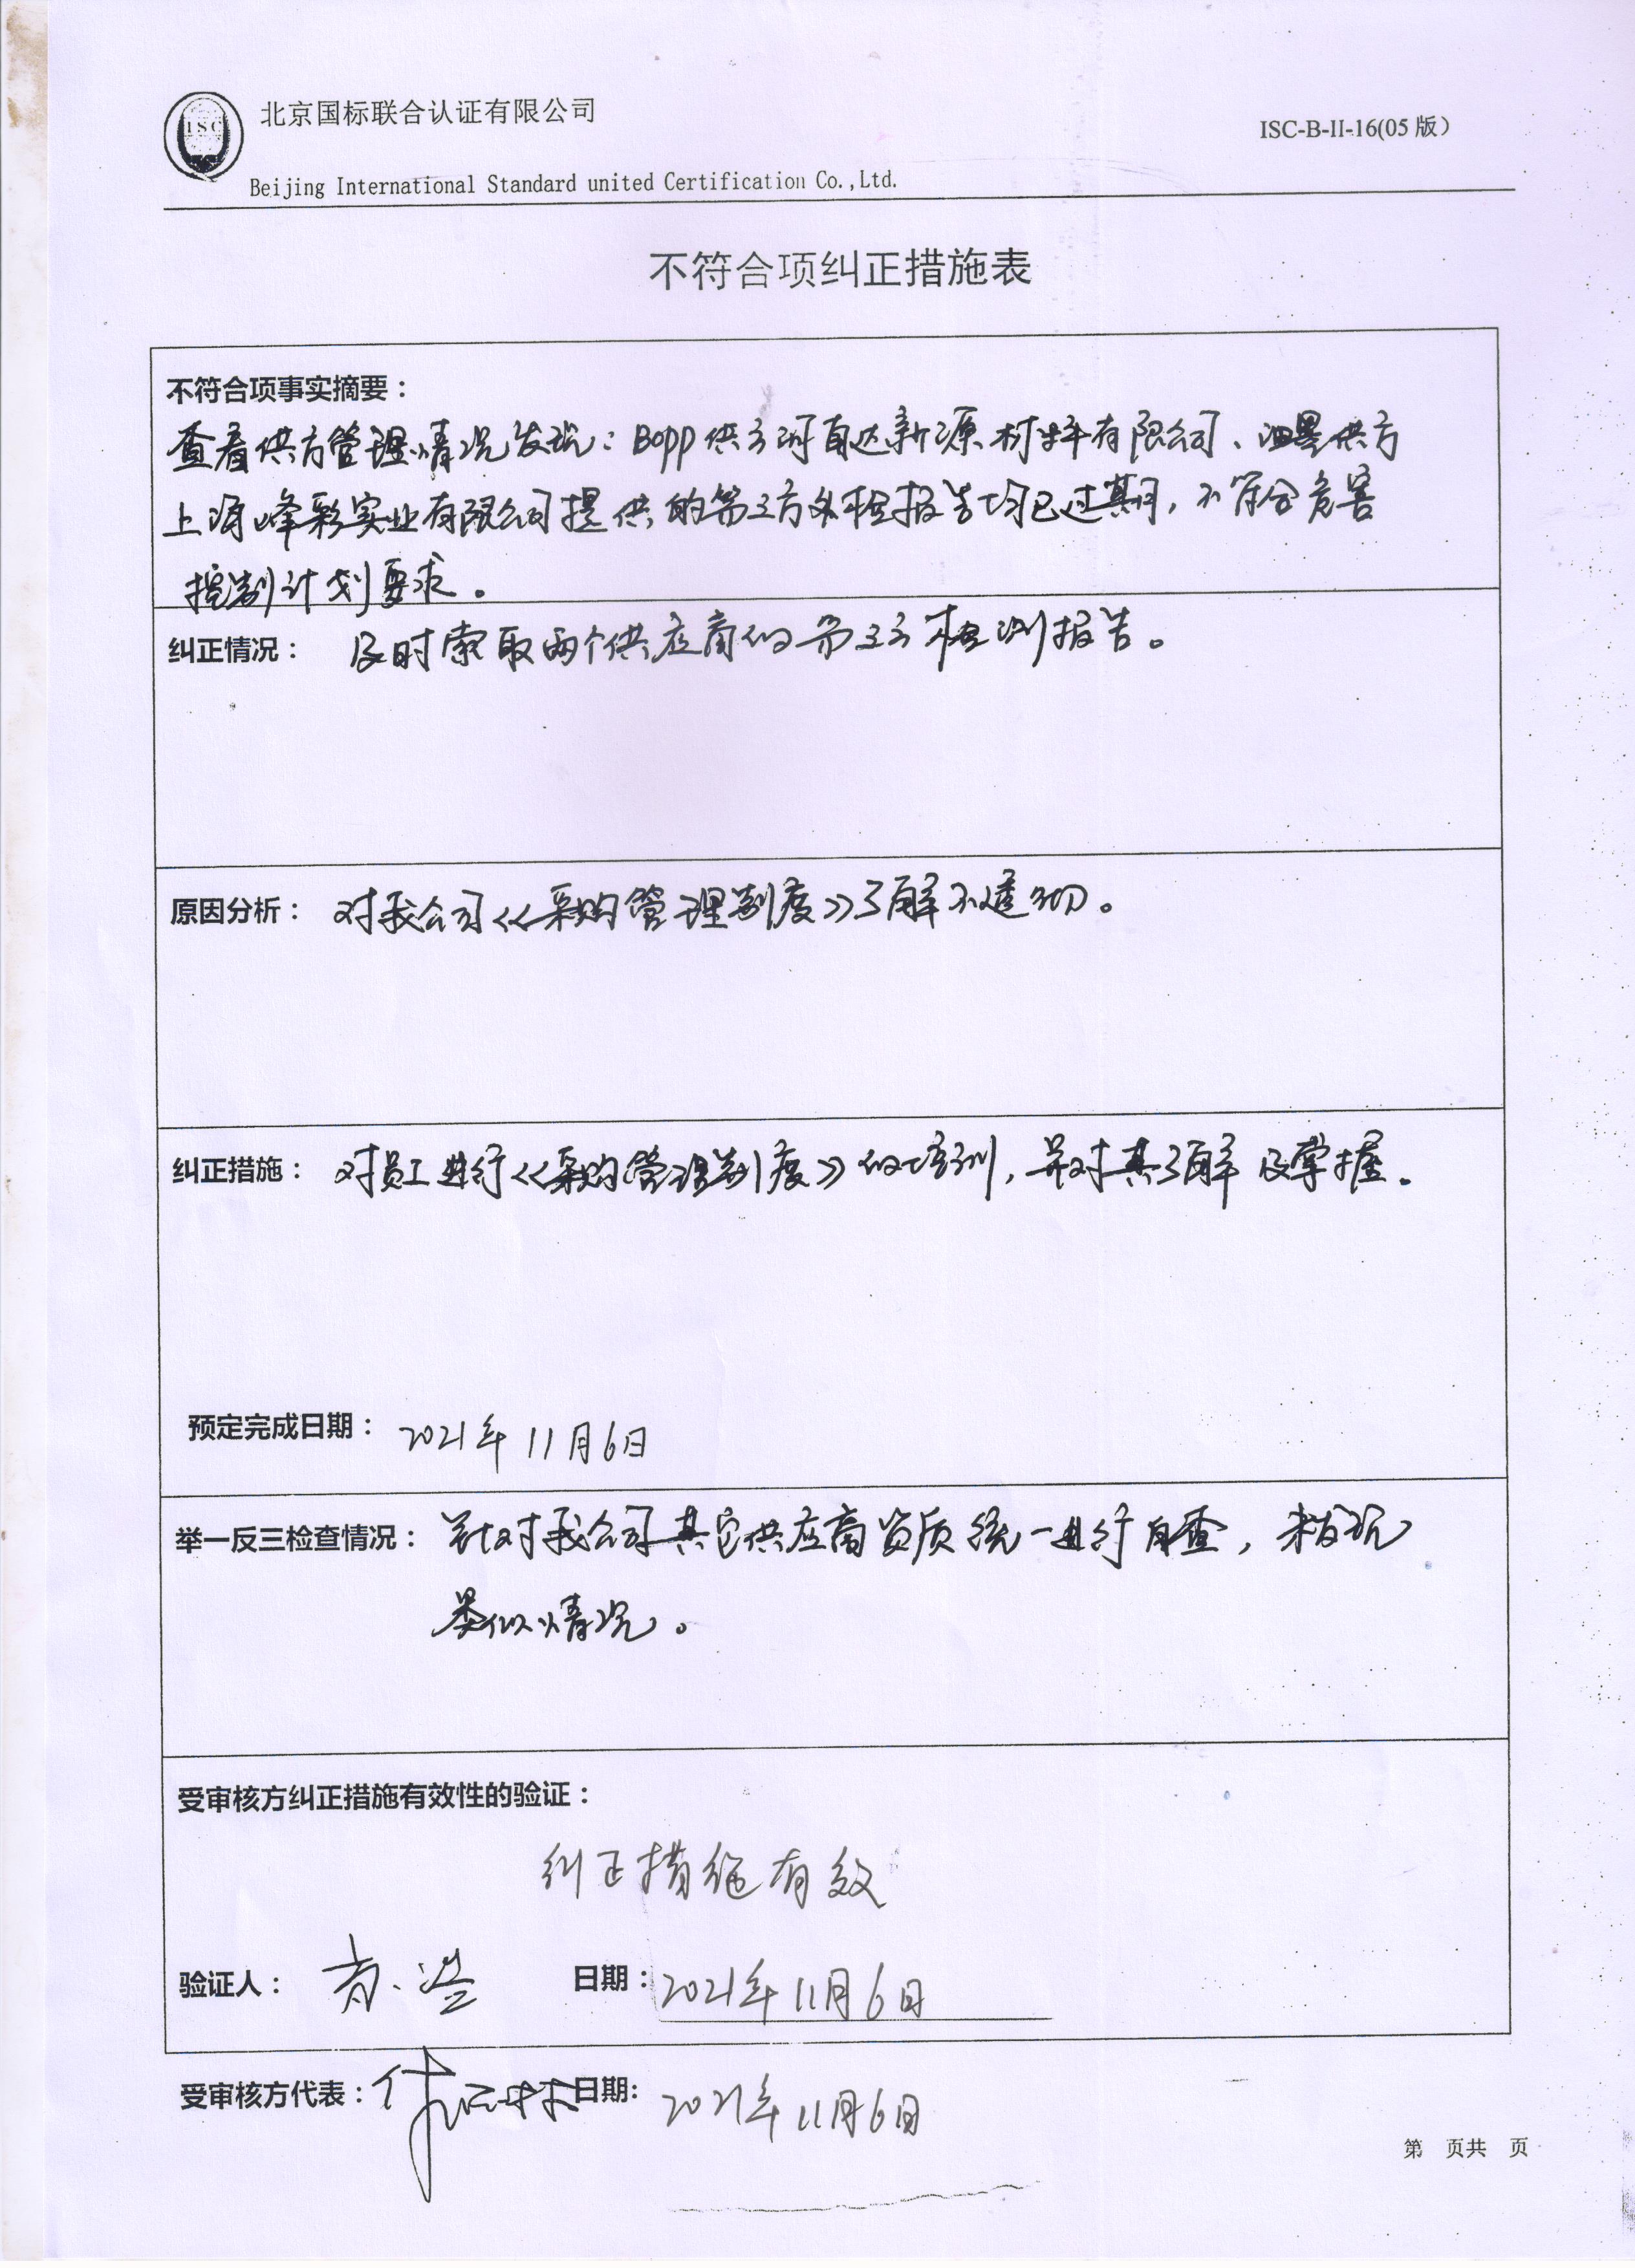 ISC
北京国标联合认证有限公司
ISC-B-II-16(05 版）
Beijing International Standard united Certification Co.,Ltd.
不符合项纠正措施表
不符合项事实摘要：
查看供方管理情况发现：Bopp供方河南达新源材料有限公司、油墨供方
上海峰彩实业有限公司提供的第三方外检报告均已过期，不符合危害
控制计划要求。
纠正情况： 及时索取两个供应商的第三方检测报告。
原因分析： 对我公司《采购管理制度》了解不透彻。
纠正措施： 对员工进行《采购管理制度》的培训，并对其了解及掌握。
预定完成日期： 2021年11月6日
举一反三检查情况： 针对我公司其它供应商资质统一进行自查，未发现
类似情况。
受审核方纠正措施有效性的验证：
纠正措施有效
验证人： 日期： 2021年11月6日
受审核方代表： 日期: 2021年11月6日
第 页共 页